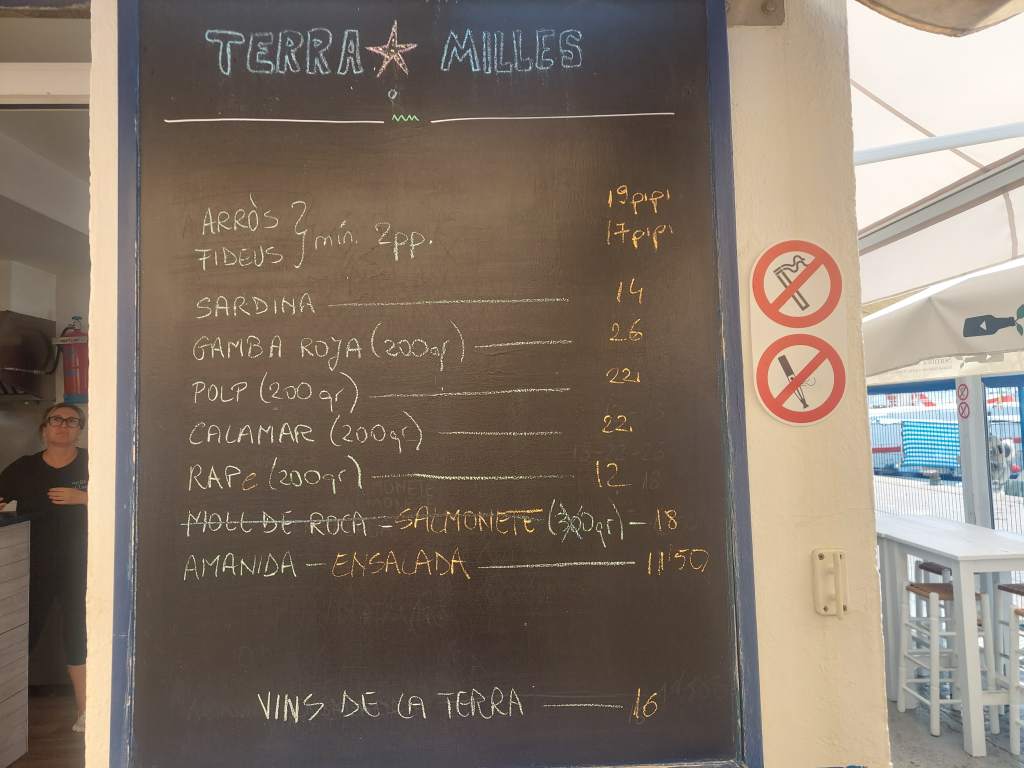 TERRA MILLES
ARRÒS } mín. 2pp. 19 p.p.
FIDEUS 17 p.p.
SARDINA 14
GAMBA ROJA (200gr) 26
POLP (200gr) 22
CALAMAR (200gr) 22
RAPe (200gr) 12
MOLL DE ROCA - SALMONETE 18
AMANIDA - ENSALADA 11'50
VINS DE LA TERRA 16